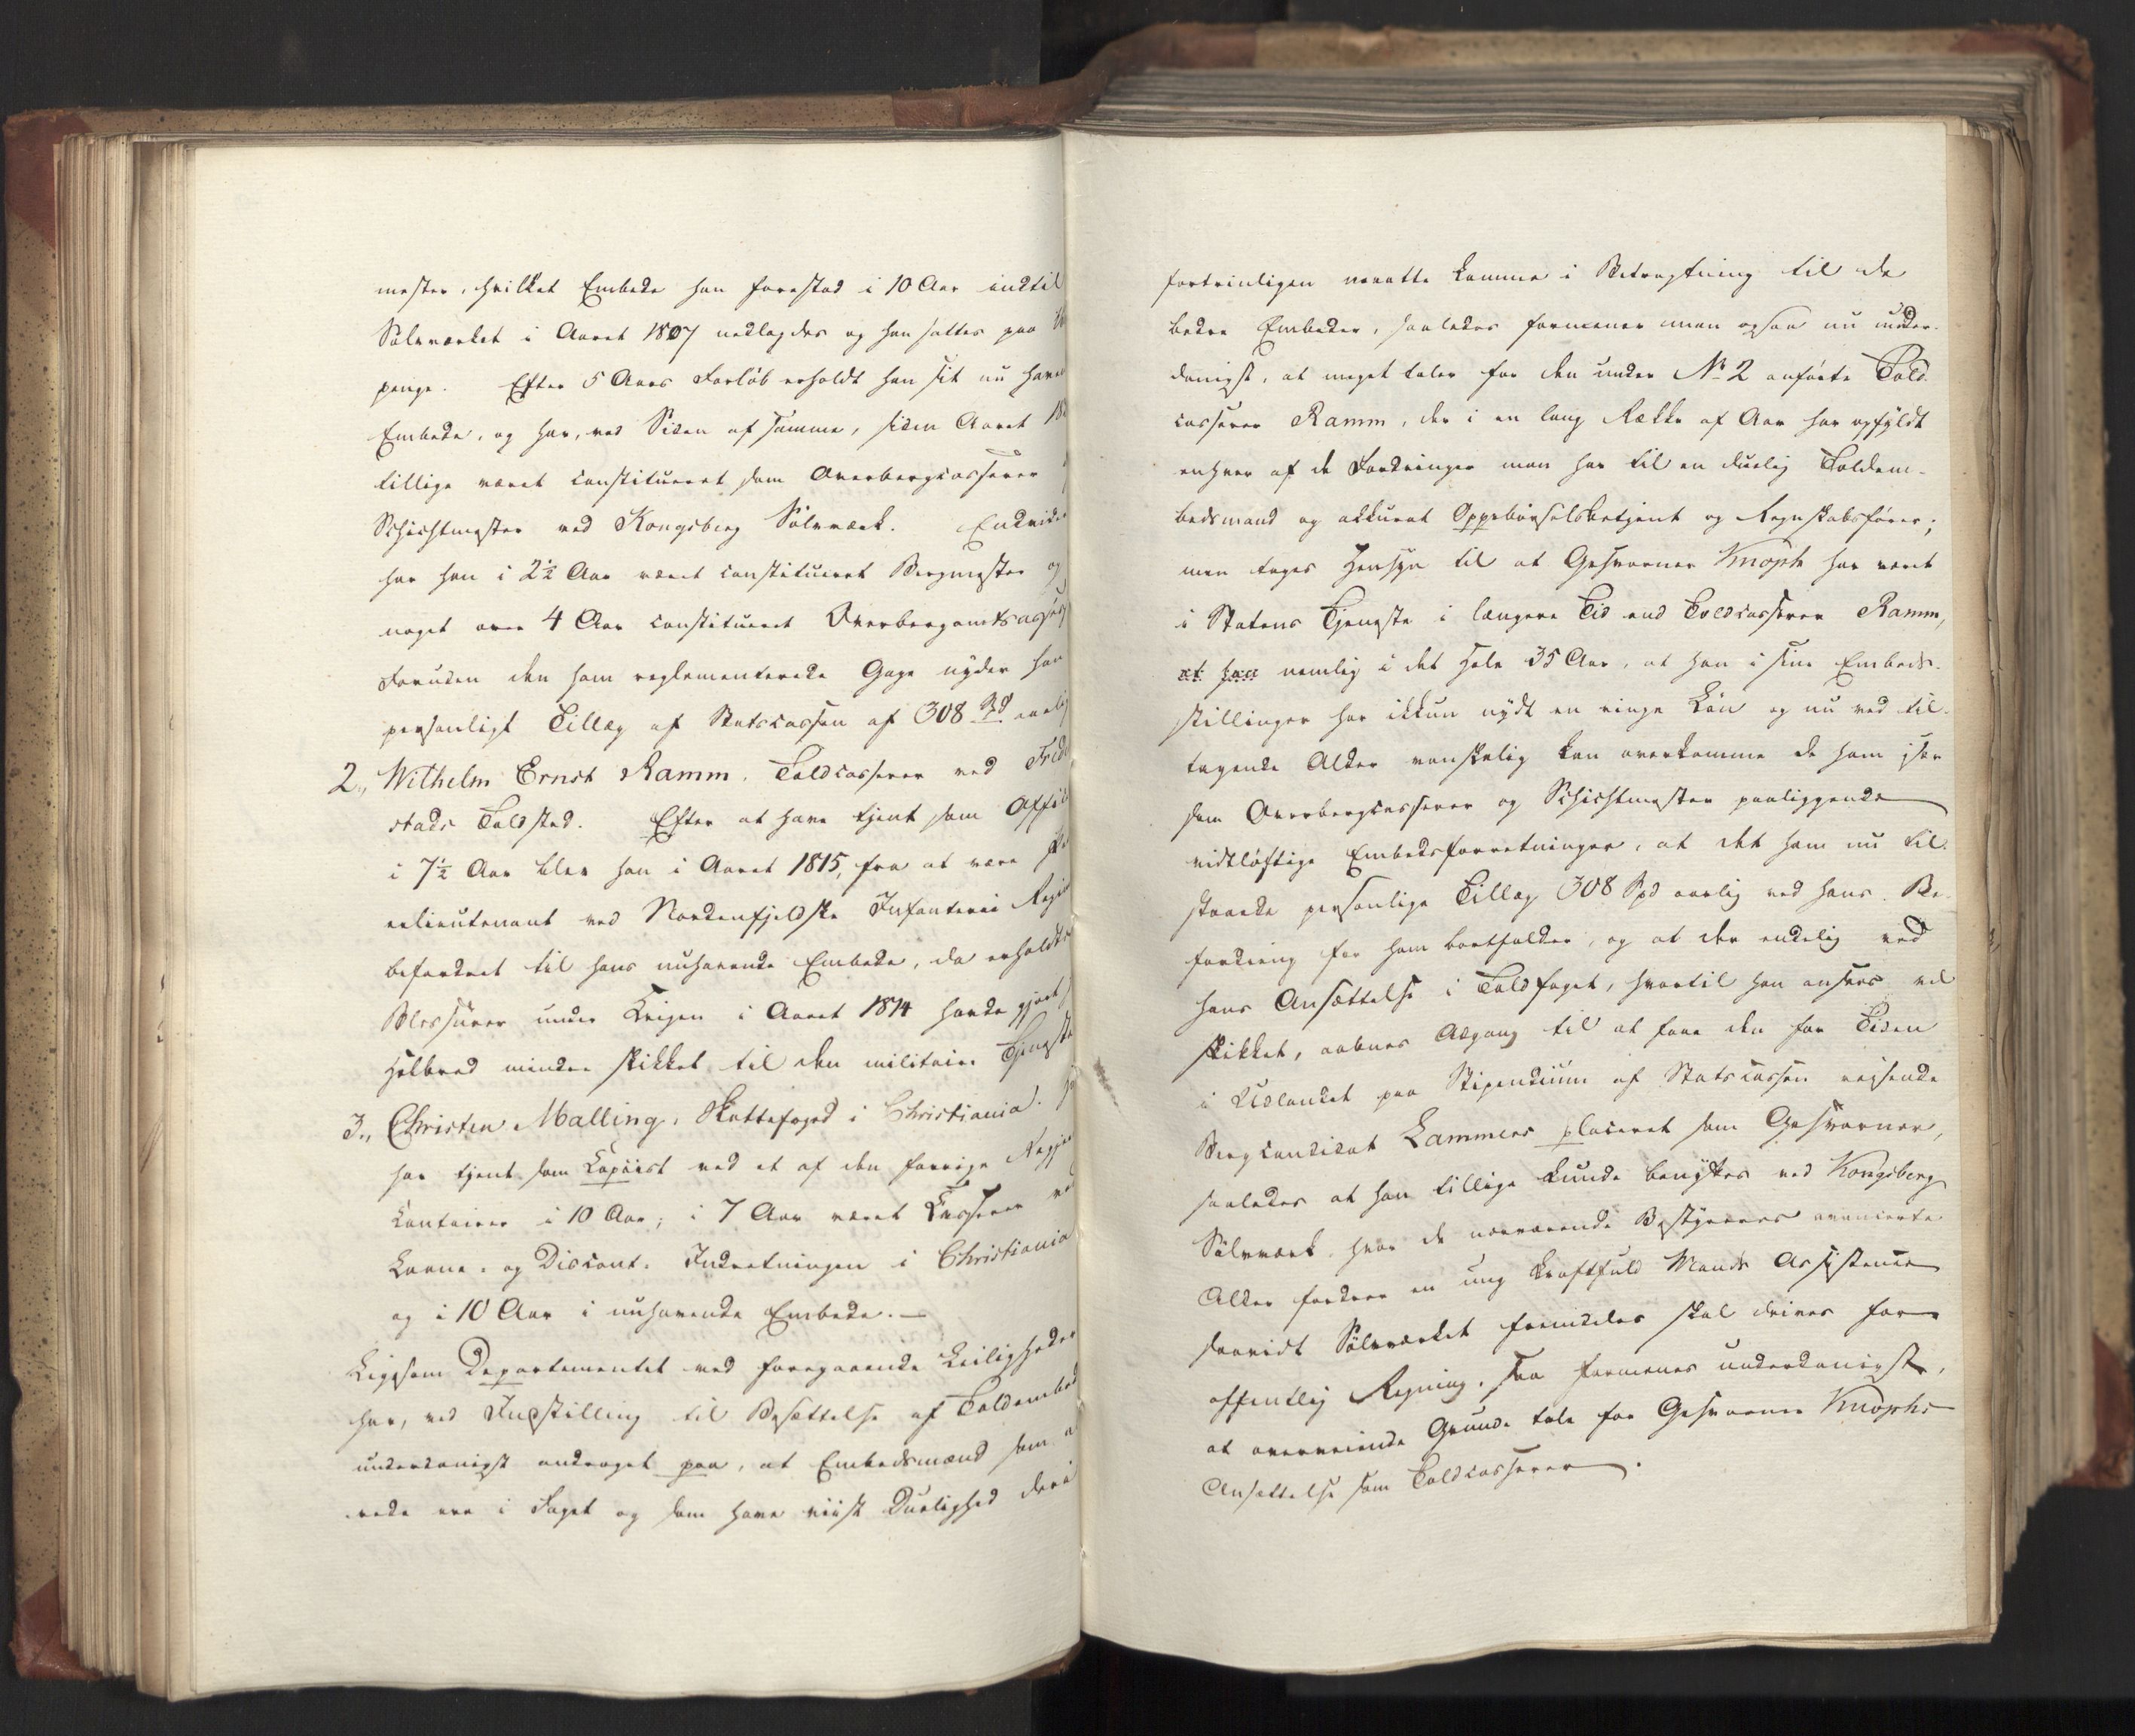 mester, hvilket Embede han forestod i 10 Aar indtil
Sølvværket i Aaret 1807 nedlagdes og han sattes paa
penge. Efter 5 Aars Forløb erholdt han sit nu have
Embede, og har, ved Siden af samme, siden Aaret 18
tillige været constitueret som Overbergcasserer
Schichtmester ved Kongsberg Sølvværk. Endvider
har han i 2½ Aar været constitueret Bergmester og
noget over 4 Aar constitueret Overbergamtsassess
Foruden den ham reglementerede Gage nyder han
personligt Tillæg af Statscassen af 308 Spd aarlig
2., Wilhelm Ernst Ramm, Toldcasserer ved Fred
stads Toldsted. Efter at have tjent som Offic
i 7½ Aar blev han i Aaret 1815, fra at være
ierlieutenant ved Nordenfjeldske Infanterie Regi
befordret til hans nuhavende Embede, da erholdte
Blessurer under Krigen i Aaret 1814 havde gjort
Helbred mindre skikket til den militaire Tjeneste
3., Christen Malling, Skattefoged i Christiania.
har tjent som Copiist ved et af den forrige Regje
Contoirer i 10 Aar; i 7 Aar været Casserer ved
Laane- og Discont-Indretningen i Christiania
og i 10 Aar i nuhavende Embede. —
Ligesom Departementet ved foregaaende Leiligheder
har, ved Indstilling til Besættelse af Toldembed
underdanigst andraget paa, at Embedsmænd som a
rede ere i Faget og som have viist Duelighed deri
fortrinligen maatte komme i Betragtning til de
bedre Embeder, saaledes formener man ogsaa nu under-
danigst, at meget taler for den under No 2 anførte Told-
casserer Ramm, der i en lang Række af Aar har opfyldt
enhver af de Fordringer man har til en duelig Toldem-
bedsmand og akkurat Oppebørselsbetjent og Regnskabsfører;
men tages Hensyn til at Gesvorner Knoph har været
i Statens Tjeneste i længere Tid end Toldcasserer Ramm,
at han nemlig i det Hele 35 Aar, at han i sine Embeds-
stillinger har ikkun nydt en ringe Løn og nu ved til-
tagende Alder vanskelig kan overkomme de ham især
som Overbergcasserer og Schichtmester paaliggende
vidtløftige Embedsforretninger, at det ham nu til-
staaede personlige Tillæg 308 Spd aarlig ved hans Be-
fordring for ham bortfalder, og at der endelig ved
hans Ansættelse i Toldfaget, hvortil han ansees vel
skikket, aabnes Adgang til at faae den for Tiden
i Udlandet paa Stipendium af Statscassen reisende
Bergcandidat Lammers placeret som Gesvorner,
saaledes at han tillige kunde benyttes ved Kongsberg
Sølvværk, hvor de nærværende Bestyreres avancerte
Alder fordrer en ung kraftfuld Mands Assistence
saavidt Sølvværket fremdeles skal drives for
offentlig Regning, saa formenes underdanigst,
at overveiende Grunde tale for Gesvorner Knophs
Ansættelse som Toldcasserer.